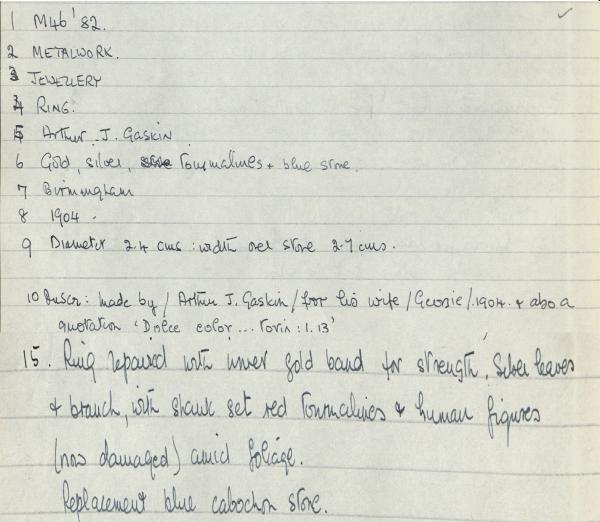 1 M46 '82.
2 METALWORK.
3 JEWELLERY
4 RING.
5 Arthur J. Gaskin
6 Gold, silver, tourmalines + blue stone.
7 Birmingham
8 1904.
9 Diameter 2.4 cms : width over stone 2.7 cms.
10 Inscr: made by / Arthur J. Gaskin / for his wife / Georgie / 1904. + also a
quotation 'Dolce color... 1.13'
15. Ring repaired with inner gold band for strength, Silver leaves
+ branch, with shank set red tourmalines + human figures
(now damaged) amid foliage.
Replacement blue cabochon stone.